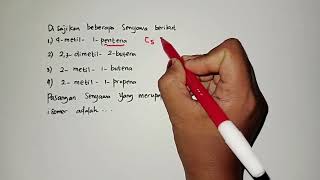 Disajikan beberapa senyawa berikut
1) 4-metil-1-pentena C5
2) 2,3-dimetil-2-butena
3) 2-metil-1-butena
4) 2-metil-1-propena
Pasangan senyawa yang merupa
isomer adalah ...